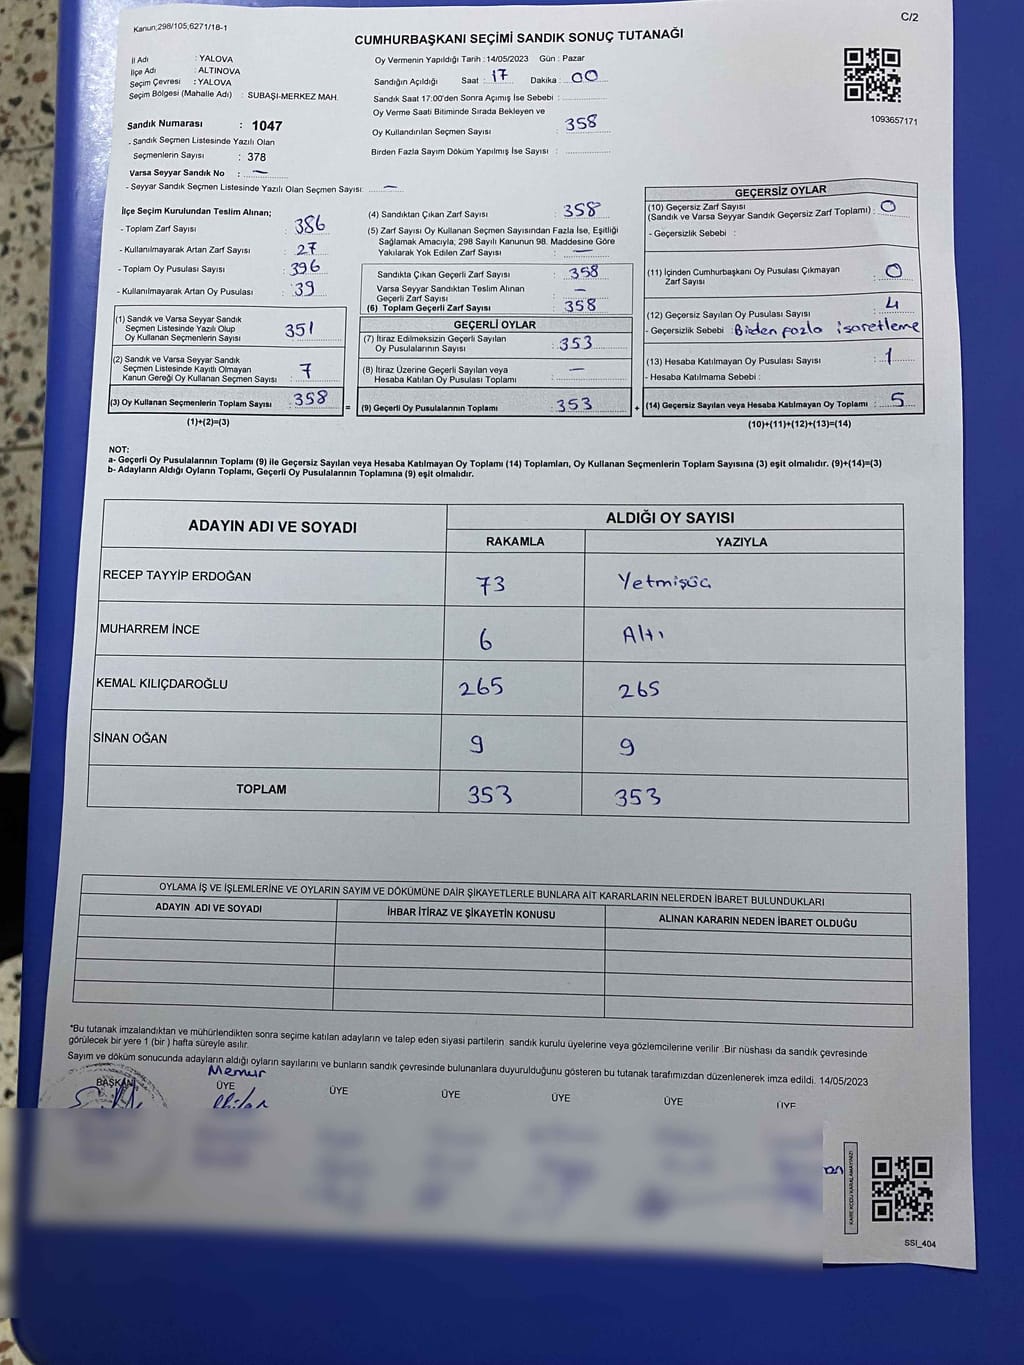 Kanun:298/105,6271/18-1
C/2
CUMHURBAŞKANI SEÇİMİ SANDIK SONUÇ TUTANAĞI
İl Adı : YALOVA
İlçe Adı : ALTINOVA
Seçim Çevresi : YALOVA
Seçim Bölgesi (Mahalle Adı) : SUBAŞI-MERKEZ MAH.
Sandık Numarası : 1047
- Sandık Seçmen Listesinde Yazılı Olan
Seçmenlerin Sayısı : 378
Varsa Seyyar Sandık No : —
- Seyyar Sandık Seçmen Listesinde Yazılı Olan Seçmen Sayısı: —
Oy Vermenin Yapıldığı Tarih : 14/05/2023 Gün : Pazar
Sandığın Açıldığı Saat : 17 Dakika : 00
Sandık Saat 17:00'den Sonra Açımış İse Sebebi :
Oy Verme Saati Bitiminde Sırada Bekleyen ve
Oy Kullandırılan Seçmen Sayısı : 358
Birden Fazla Sayım Döküm Yapılmış İse Sayısı :
1093657171
İlçe Seçim Kurulundan Teslim Alınan;
- Toplam Zarf Sayısı : 386
- Kullanılmayarak Artan Zarf Sayısı : 27
- Toplam Oy Pusulası Sayısı : 396
- Kullanılmayarak Artan Oy Pusulası : 39
(1) Sandık ve Varsa Seyyar Sandık
Seçmen Listesinde Yazılı Olup
Oy Kullanan Seçmenlerin Sayısı : 351
(2) Sandık ve Varsa Seyyar Sandık
Seçmen Listesinde Kayıtlı Olmayan
Kanun Gereği Oy Kullanan Seçmen Sayısı : 7
(3) Oy Kullanan Seçmenlerin Toplam Sayısı : 358
(1)+(2)=(3)
(4) Sandıktan Çıkan Zarf Sayısı : 358
(5) Zarf Sayısı Oy Kullanan Seçmen Sayısından Fazla İse, Eşitliği
Sağlamak Amacıyla, 298 Sayılı Kanunun 98. Maddesine Göre
Yakılarak Yok Edilen Zarf Sayısı : —
Sandıkta Çıkan Geçerli Zarf Sayısı : 358
Varsa Seyyar Sandıktan Teslim Alınan
Geçerli Zarf Sayısı : —
(6) Toplam Geçerli Zarf Sayısı : 358
GEÇERLİ OYLAR
(7) İtiraz Edilmeksizin Geçerli Sayılan
Oy Pusulalarının Sayısı : 353
(8) İtiraz Üzerine Geçerli Sayılan veya
Hesaba Katılan Oy Pusulası Toplamı : —
= (9) Geçerli Oy Pusulalarının Toplamı : 353 +
GEÇERSİZ OYLAR
(10) Geçersiz Zarf Sayısı
(Sandık ve Varsa Seyyar Sandık Geçersiz Zarf Toplamı) : 0
- Geçersizlik Sebebi :
(11) İçinden Cumhurbaşkanı Oy Pusulası Çıkmayan
Zarf Sayısı : 0
(12) Geçersiz Sayılan Oy Pusulası Sayısı : 4
- Geçersizlik Sebebi : Birden fazla işaretleme
(13) Hesaba Katılmayan Oy Pusulası Sayısı : 1
- Hesaba Katılmama Sebebi :
(14) Geçersiz Sayılan veya Hesaba Katılmayan Oy Toplamı : 5
(10)+(11)+(12)+(13)=(14)
NOT:
a- Geçerli Oy Pusulalarının Toplamı (9) ile Geçersiz Sayılan veya Hesaba Katılmayan Oy Toplamı (14) Toplamları, Oy Kullanan Seçmenlerin Toplam Sayısına (3) eşit olmalıdır. (9)+(14)=(3)
b- Adayların Aldığı Oyların Toplamı, Geçerli Oy Pusulalarının Toplamına (9) eşit olmalıdır.
ADAYIN ADI VE SOYADI
ALDIĞI OY SAYISI
RAKAMLA YAZIYLA
RECEP TAYYİP ERDOĞAN 73 Yetmişüç
MUHARREM İNCE 6 Altı
KEMAL KILIÇDAROĞLU 265 265
SİNAN OĞAN 9 9
TOPLAM 353 353
OYLAMA İŞ VE İŞLEMLERİNE VE OYLARIN SAYIM VE DÖKÜMÜNE DAİR ŞİKAYETLERLE BUNLARA AİT KARARLARIN NELERDEN İBARET BULUNDUKLARI
ADAYIN ADI VE SOYADI İHBAR İTİRAZ VE ŞİKAYETİN KONUSU ALINAN KARARIN NEDEN İBARET OLDUĞU
*Bu tutanak imzalandıktan ve mühürlendikten sonra seçime katılan adayların ve talep eden siyasi partilerin sandık kurulu üyelerine veya gözlemcilerine verilir .Bir nüshası da sandık çevresinde
görülecek bir yere 1 (bir ) hafta süreyle asılır.
Sayım ve döküm sonucunda adayların aldığı oyların sayılarını ve bunların sandık çevresinde bulunanlara duyurulduğunu gösteren bu tutanak tarafımızdan düzenlenerek imza edildi. 14/05/2023
Memur
BAŞKAN ÜYE ÜYE ÜYE ÜYE ÜYE ÜYE
KARE KODU KARALAMAYINIZ!
SSI_404